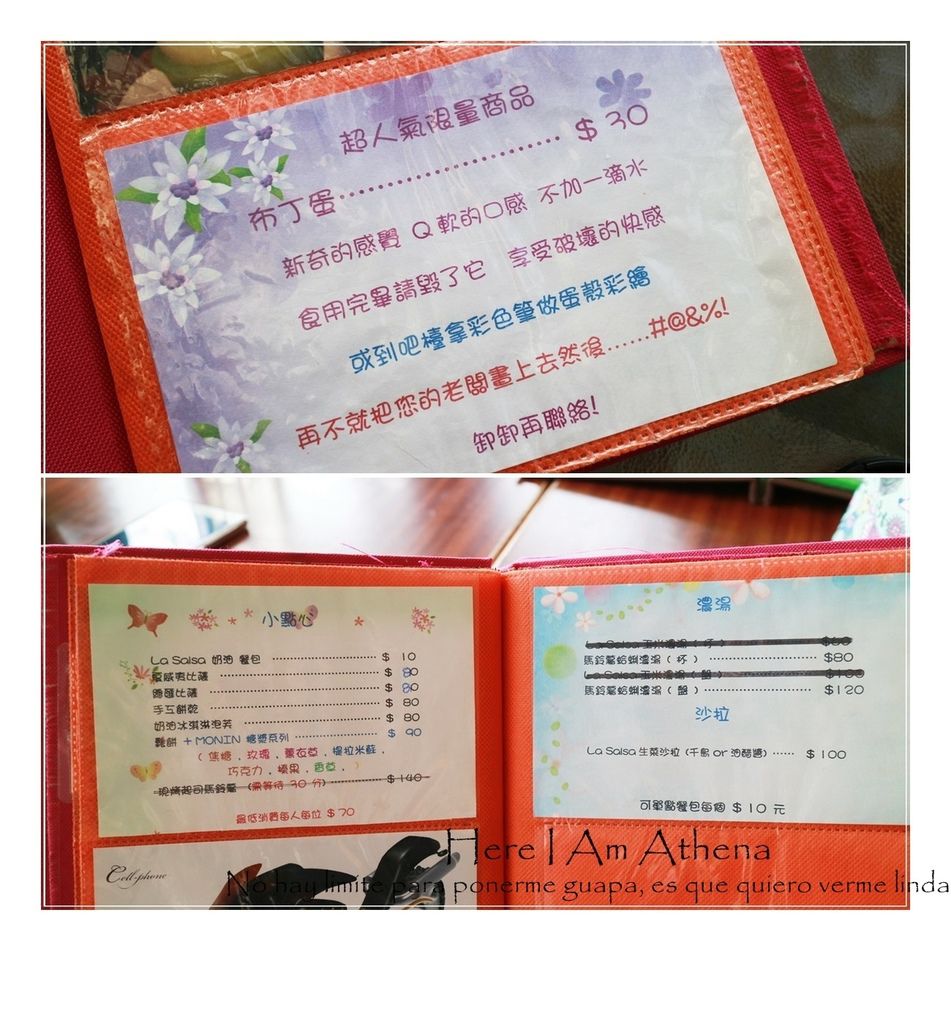 超人氣限量商品
布丁蛋 ........................ $ 30
新奇的感覺 Q 軟的口感 不加一滴水
食用完畢請毀了它 享受破壞的快感
或到吧檯拿彩色筆做蛋殼彩繪
再不就把您的老闆畫上去然後......#@&%!
卸卸再聯絡!
小點心
La Salsa 奶油 餐包 ........................ $ 10
夏威夷比薩 ........................ $ 80
燻雞比薩 ........................ $ 80
手工餅乾 ........................ $ 80
奶油冰淇淋泡芙 ........................ $ 80
鬆餅 + MONIN 糖漿系列 ........................ $ 90
( 焦糖 , 玫瑰 , 薰衣草 , 提拉米蘇 ,
巧克力 , 榛果 , 香草 , )
現烤起司馬鈴薯 (需等待 30 分) ........................ $ 140
最低消費每人每位 $ 70
Cell-phone
濃湯
La Salsa 玉米濃湯 ( 杯 ) $60
馬鈴薯蛤蜊濃湯 ( 杯 ) ........................ $80
La Salsa 玉米濃湯 ( 盤 ) $100
馬鈴薯蛤蜊濃湯 ( 盤 ) ........................ $120
沙拉
La Salsa 生菜沙拉 (千島 or 油醋醬) ...... $ 100
可單點餐包每個 $ 10 元
Here I Am Athena
No hay limite para ponerme guapa, es que quiero verme linda